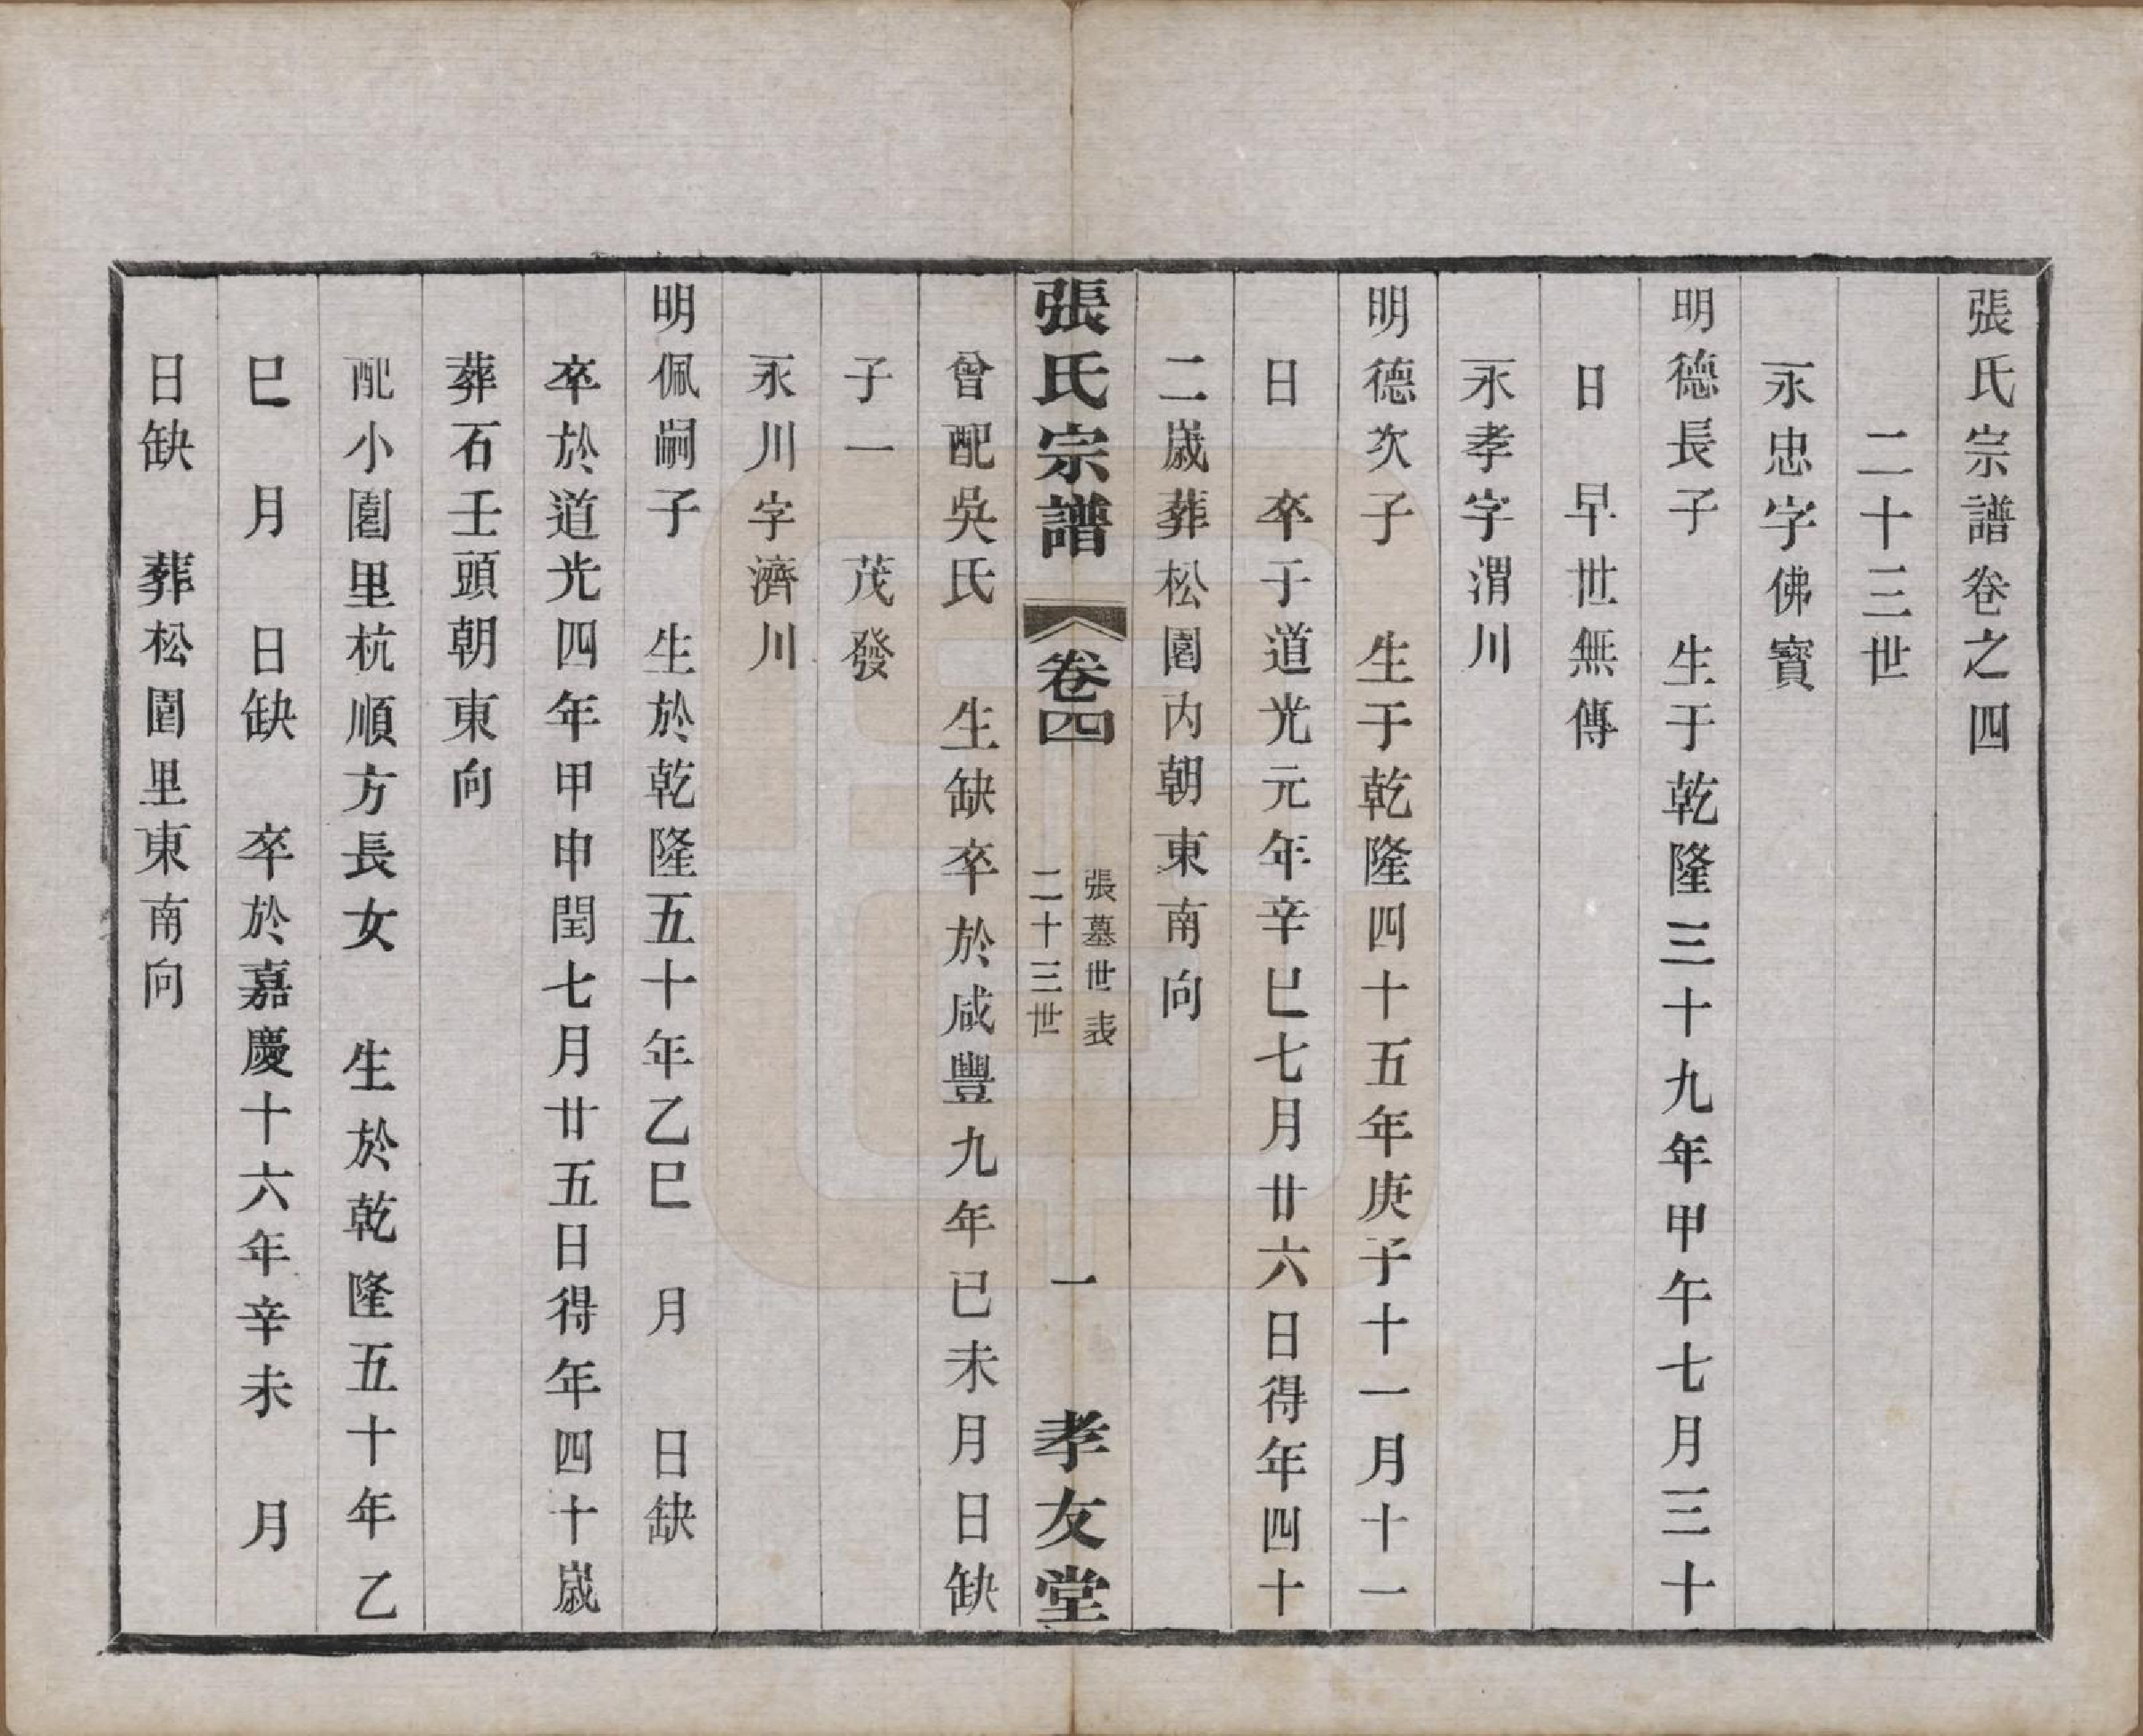 張氏宗譜卷之四
二十三世
永忠字佛寶
明德長子　生于乾隆三十九年甲午七月三十
日　早世無傳
永孝字渭川
明德次子　生于乾隆四十五年庚子十一月十一
日　卒于道光元年辛巳七月廿六日得年四十
二歲葬松園内朝東南向
張氏宗譜　卷四　張墓世表　二十三世　一　孝友堂
曾配吳氏　生缺卒於咸豐九年已未月日缺
子一　茂發
永川字濟川
明佩嗣子　生於乾隆五十年乙巳　月　日缺
卒於道光四年甲申閏七月廿五日得年四十歲
葬石壬頭朝東向
配小園里杭順方長女　生於乾隆五十年乙
巳　月　日缺　卒於嘉慶十六年辛未　月
日缺　葬松園里東南向